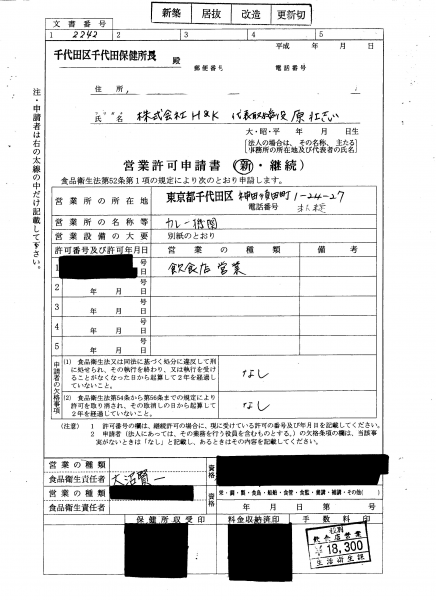 新築 居抜 改造 更新切
文書番号
1 2242 2 3 4 5
平成 年 月 日
千代田区千代田保健所長 殿
郵便番号 電話番号
住所,
フリガナ
氏名 株式会社 H&K 代表取締役 原
大・昭・平 年 月 日生
[法人の場合は、その名称、主たる
事務所の所在地及び代表者の氏名]
営業許可申請書(新・継続)
食品衛生法第52条第1項の規定により次のとおり申請します。
営業所の所在地 東京都千代田区 1-24-27
電話番号
営業所の名称等 カレー機関
営業設備の大要 別紙のとおり
許可番号及び許可年月日 営業の種類 備考
1 号 日 飲食店営業
2 号 年 月 日
3 号 年 月 日
4 号 年 月 日
5 号 年 月 日
申請者の欠格事項
(1) 食品衛生法又は同法に基づく処分に違反して刑
に処せられ、その執行を終わり、又は執行を受け
ることがなくなった日から起算して2年を経過し
ていないこと。 なし
(2) 食品衛生法第54から第56条までの規定により
許可を取り消され、その取消しの日から起算して
2年を経過していないこと。 なし
(注意) 1 許可番号の欄は、継続許可の場合に、現に受けている許可の番号及び年月日を記載してください。
2 申請者(法人にあっては、その業務を行う役員を含むものとする。)の欠格事項の欄は、当該事
実がないときは「なし」と記載し、あるときはその内容を記載してください。
注・申請者は右の太線の中だけ記載して下さい。
営業の種類 資格
食品衛生責任者 大沼賢一
営業の種類 資格
食品衛生責任者 年 月 日 第 号
保健所収受印 料金収納済印 手数料
飲食店営業
¥18,300
生活衛生課